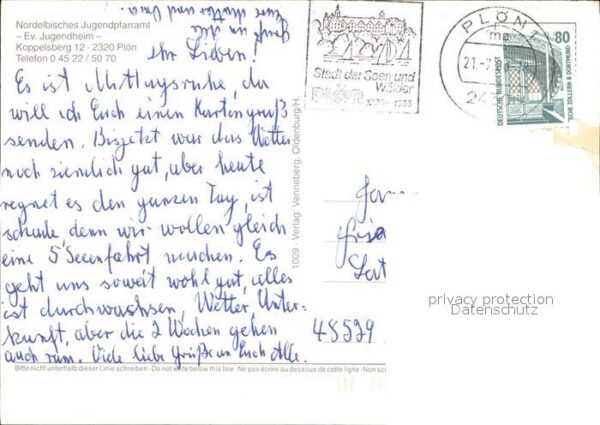 Nordelbisches Jugendpfarramt
– Ev. Jugendheim –
Koppelsberg 12 · 2320 Plön
Telefon 0 45 22 / 50 70
Ihr Lieben!
Es ist Mittagsruhe, da
will ich Euch einen Kartengruß
senden. Bisjetzt war das Wetter
noch ziemlich gut, aber heute
regnet es den ganzen Tag, ist
schade denn wir wollen gleich
eine 5 Seenfahrt machen. Es
geht uns soweit wohl gut, alles
ist durchwachsen, Wetter Unter-
kunft, aber die 2 Wochen gehen
auch rum. Viele liebe Grüße an Euch Alle.
Eure Mutter und Oma.
Stadt der Seen und
Wälder
PLÖN
PLÖN
21.-7
24
80
DEUTSCHE BUNDESPOST
ZECHE ZOLLERN II DORTMUND
1009 · Verlag: Venneberg, Oldenburg/H.
48529
privacy protection
Datenschutz
Bitte nicht unterhalb dieser Linie schreiben · Do not write below this line · Ne pas écrire au dessous de cette ligne · Non scri